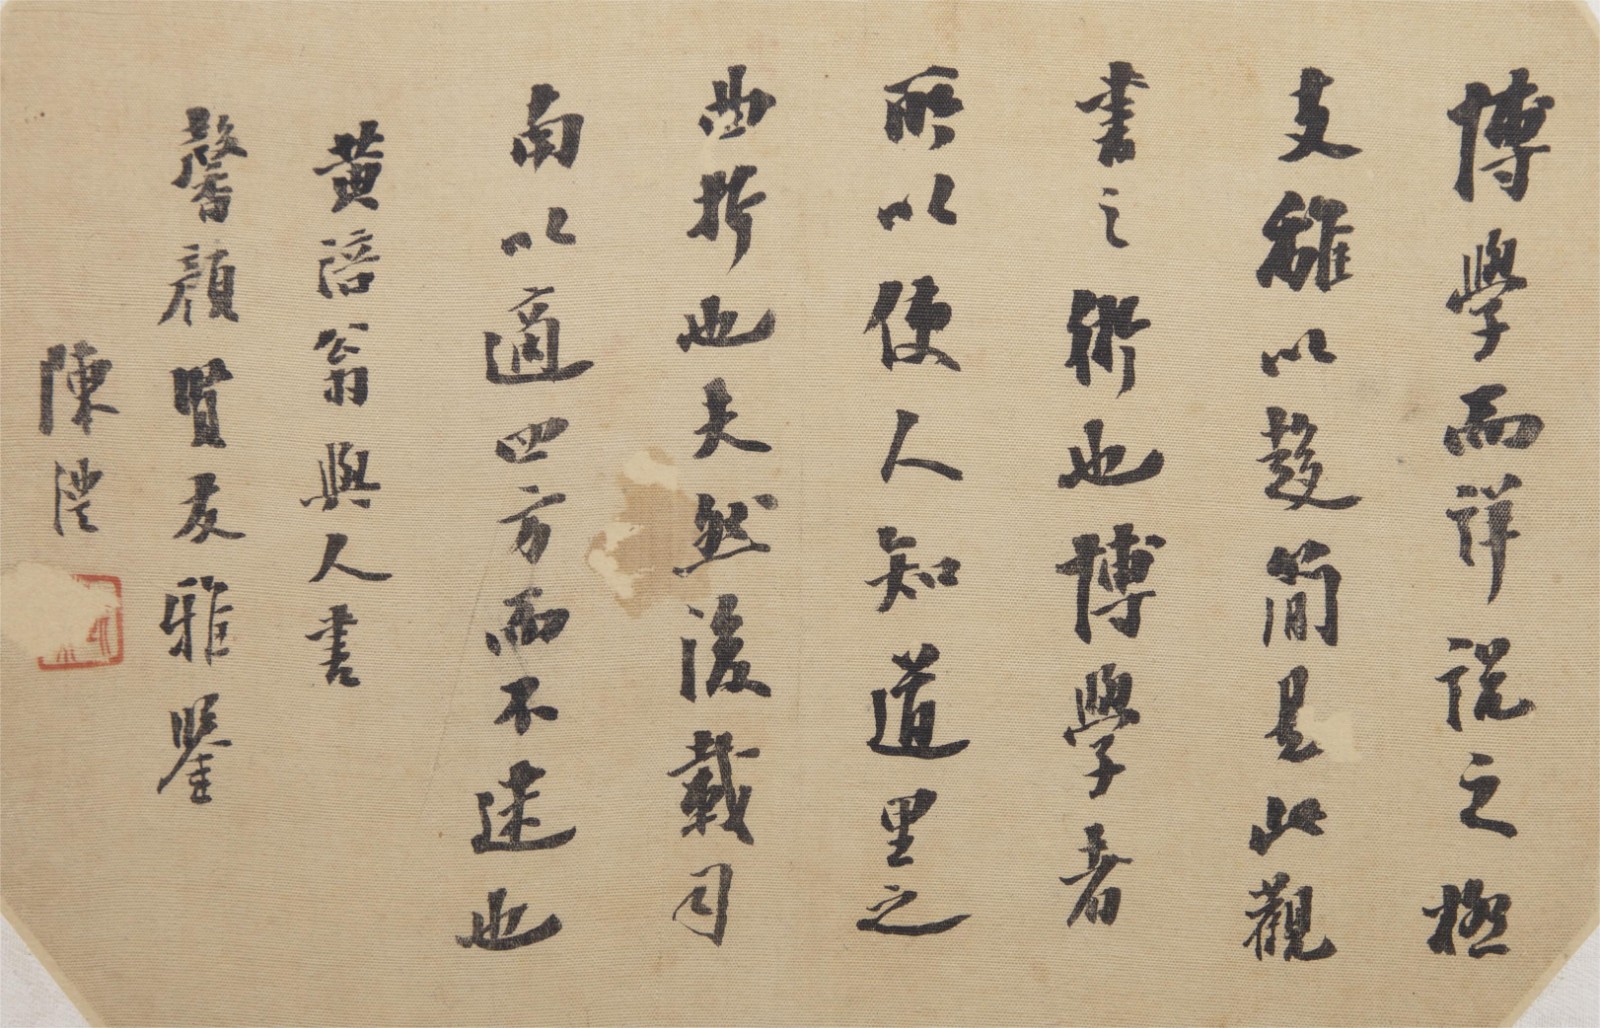 博學而詳說之極
支離以趍簡易此觀
書之術也博學者
所以使人知道里之
曲折也夫然後載司
南以適四方而不迷也
黃涪翁與人書
馨顏賢友雅鑒
陳澧